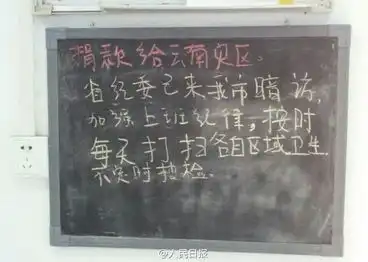 捐款给云南灾区.
省纪委已来我市暗访,
加强上班纪律,按时
每天打扫各自区域卫生
不定时抽检.
@人民日报